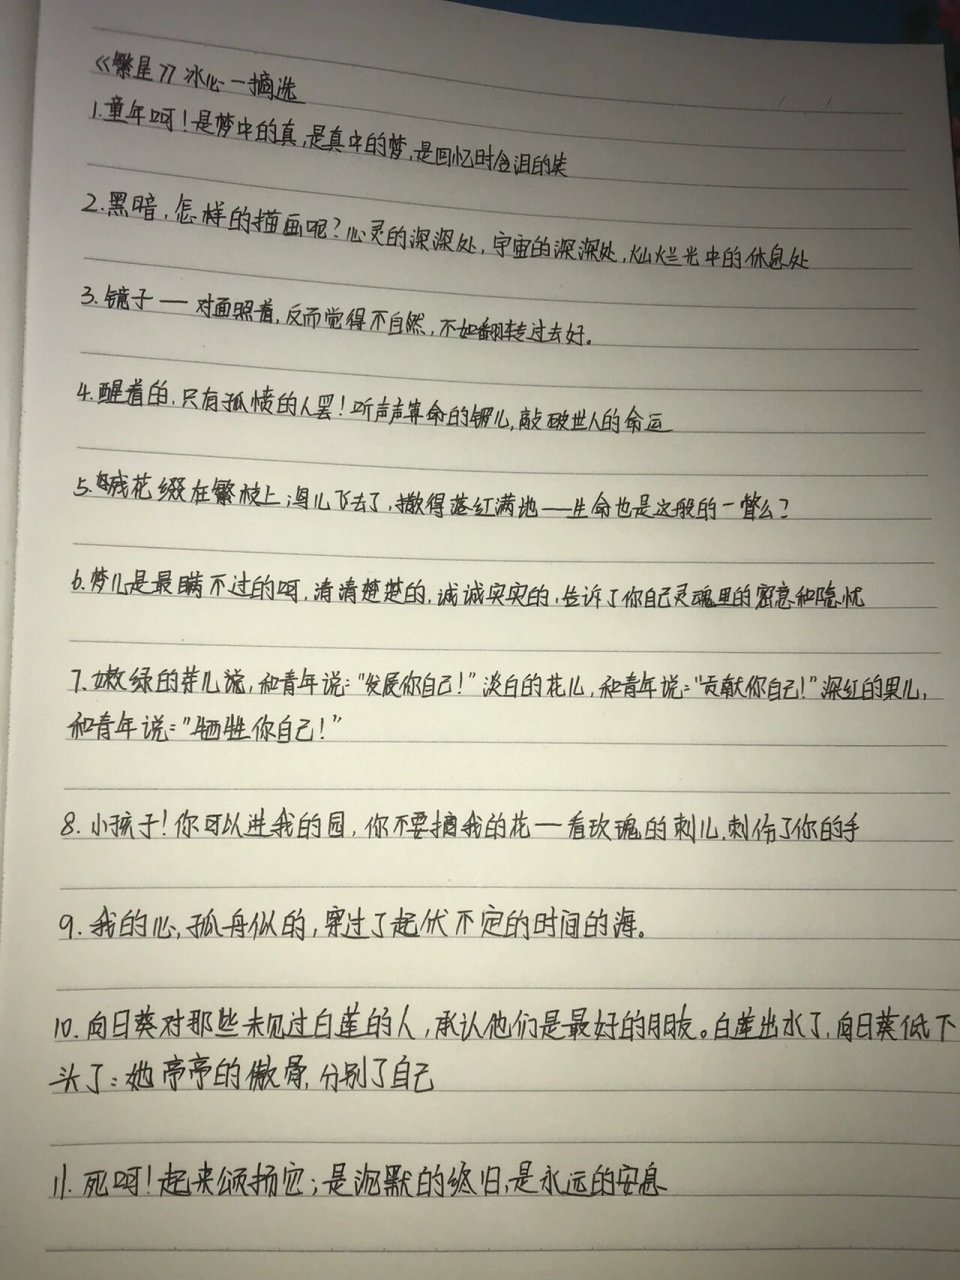 《繁星》冰心—摘选
1.童年呵!是梦中的真,是真中的梦,是回忆时含泪的笑
2.黑暗,怎样的描画呢?心灵的深深处,宇宙的深深处,灿烂光中的休息处
3.镜子——对面照着,反而觉得不自然,不如翻转过去好。
4.醒着的,只有孤愤的人罢!听声声算命的锣儿,敲破世人的命运
5.残花缀在繁枝上;鸟儿飞去了,撒得落红满地——生命也是这般的一瞥么?
6.梦儿是最瞒不过的呵,清清楚楚的,诚诚实实的,告诉了你自己灵魂里的密意和隐忧
7.嫩绿的芽儿说,和青年说:"发展你自己!"淡白的花儿,和青年说:"贡献你自己!"深红的果儿,
和青年说:"牺牲你自己!"
8.小孩子!你可以进我的园,你不要摘我的花—看玫瑰的刺儿,刺伤了你的手
9.我的心,孤舟似的,穿过了起伏不定的时间的海。
10.向日葵对那些未见过白莲的人,承认他们是最好的朋友。白莲出水了,向日葵低下
头了:她亭亭的傲骨,分别了自己
11.死呵!起来颂扬它;是沉默的终归,是永远的安息